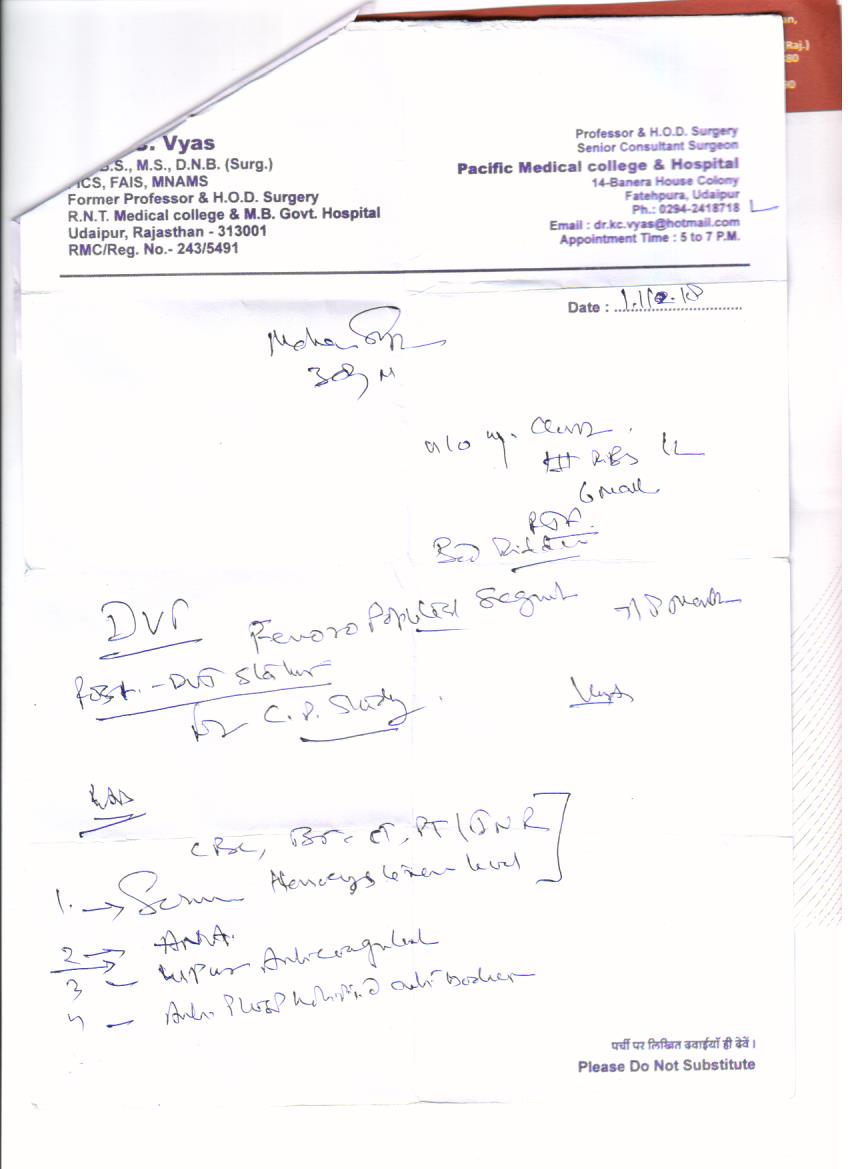 an,
(Raj.)
80
90
. Vyas
.S., M.S., D.N.B. (Surg.)
ICS, FAIS, MNAMS
Former Professor & H.O.D. Surgery
R.N.T. Medical college & M.B. Govt. Hospital
Udaipur, Rajasthan - 313001
RMC/Reg. No.- 243/5491
Professor & H.O.D. Surgery
Senior Consultant Surgeon
Pacific Medical college & Hospital
14-Banera House Colony
Fatehpura, Udaipur
Ph.: 0294-2418718
Email : dr.kc.vyas@hotmail.com
Appointment Time : 5 to 7 P.M.
Date :
Mohan
M
Ribs
Bed Ridden
DVT Femoro Popliteal Segment
Post - DVT Status
for C.D. Study
Vyas
CBC, BT- CT, PT/INR
1. → Serum Homocysteine level
2 → ANA.
3 - Lupus Anticoagulant
4 - Anti Phospholipid anti bodies
पर्ची पर लिखित दवाईयाँ ही देवें ।
Please Do Not Substitute